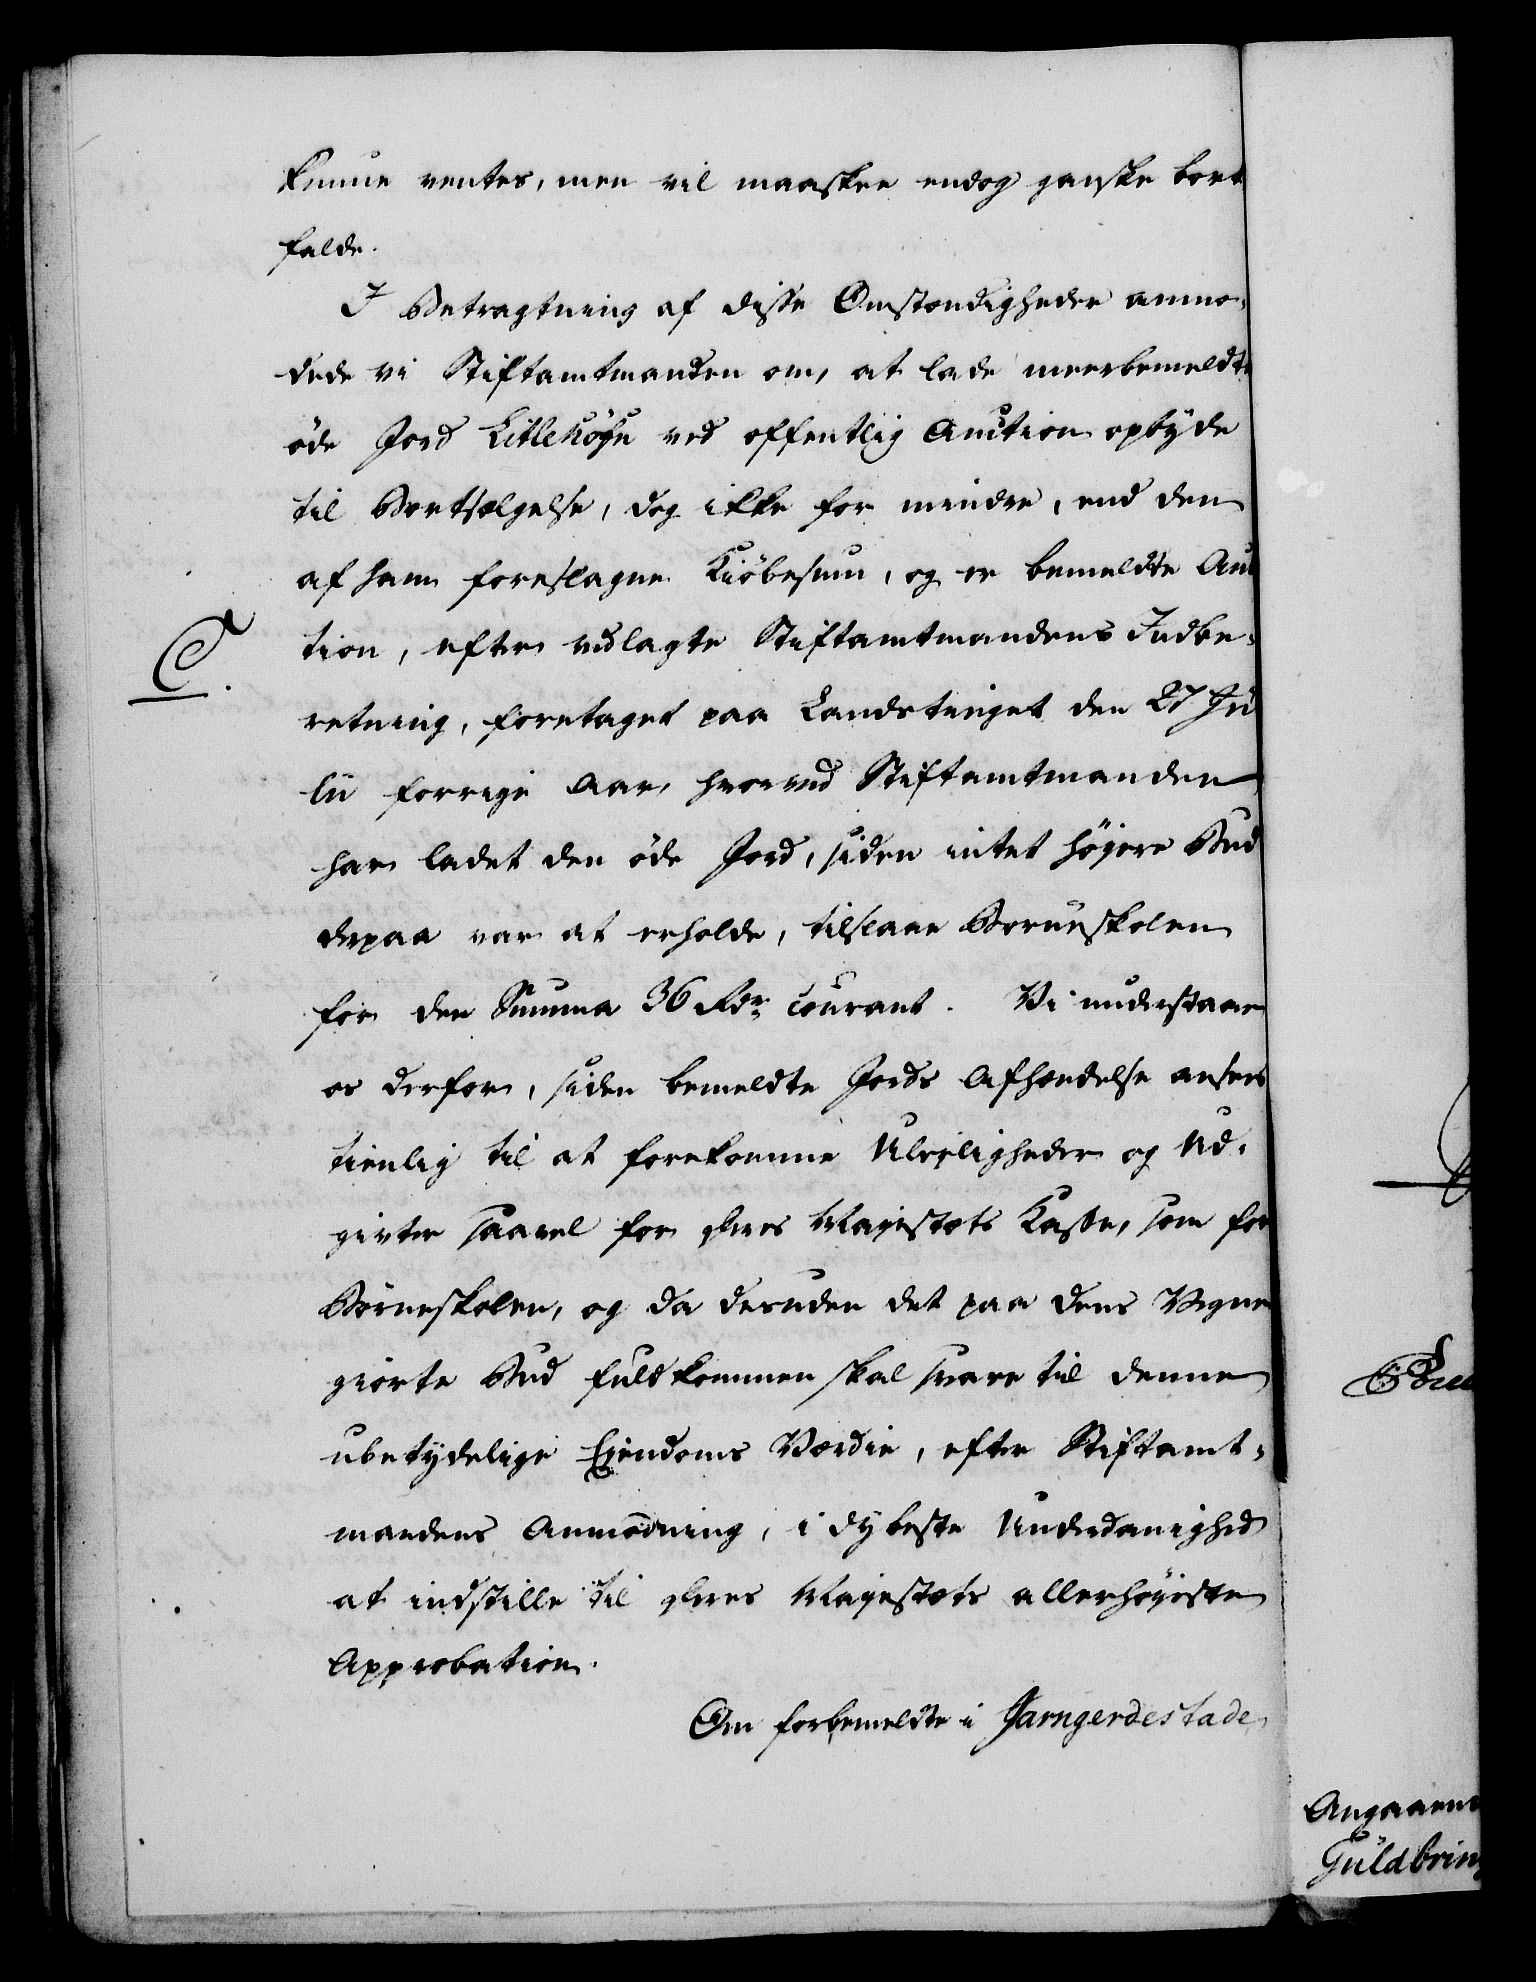 kunne ventes, men vil maaskee endog ganske bort
falde.
I Betragtning af disse Omstændigheder anmo-
dede vi Stiftamtmanden om, at lade meerbemeldte
öde Jord Litlehöfn ved offentlig Auction opbyde
til Bortsælgelse, dog ikke for mindre, end den
af ham foreslagne Kiöbesum, og er bemeldte Auc
tion, efter vedlagte Stiftamtmandens Indbe-
C.
retning, foretaget paa Landstinget den 27 Ju
lii forrige Aar, hvorved Stiftamtmanden
har ladet den öde Jord, siden intet höjere Bud
derpaa var at erholde, tilslaae Börneskolen
for den Summa 36 Rdr courant. Vi understaae
os derfor, siden bemeldte Jords Afhændelse ansees
tienlig til at forekomme Ulejligheder og Ud-
givter saavel for Deres Majestæts Kasse, som for
Börneskolen, og da desuden det paa dens Vegne
giorte Bud fuldkommen skal svare til denne
ubetydelige Ejendoms Værdie, efter Stiftamt-
mandens Anmodning, i dybeste Underdanighed
at indstille til Deres Majestæts allerhöjeste
Approbation.
Om forbemeldte i Jarngerdestade
Angaaen
Guldbring